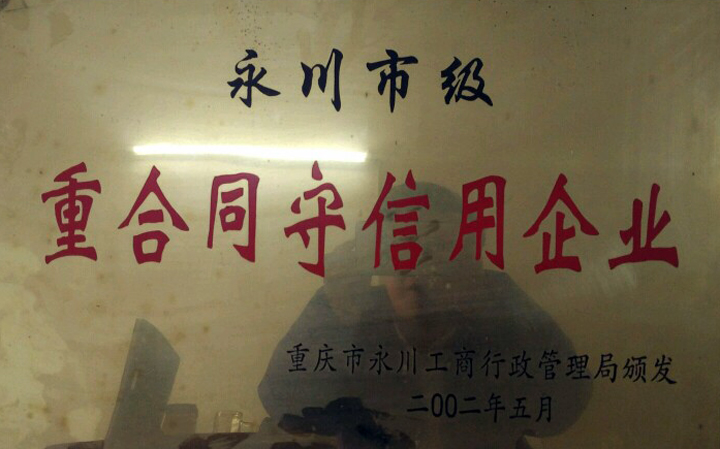 永川市级
重合同守信用企业
重庆市永川工商行政管理局颁发
二00二年五月